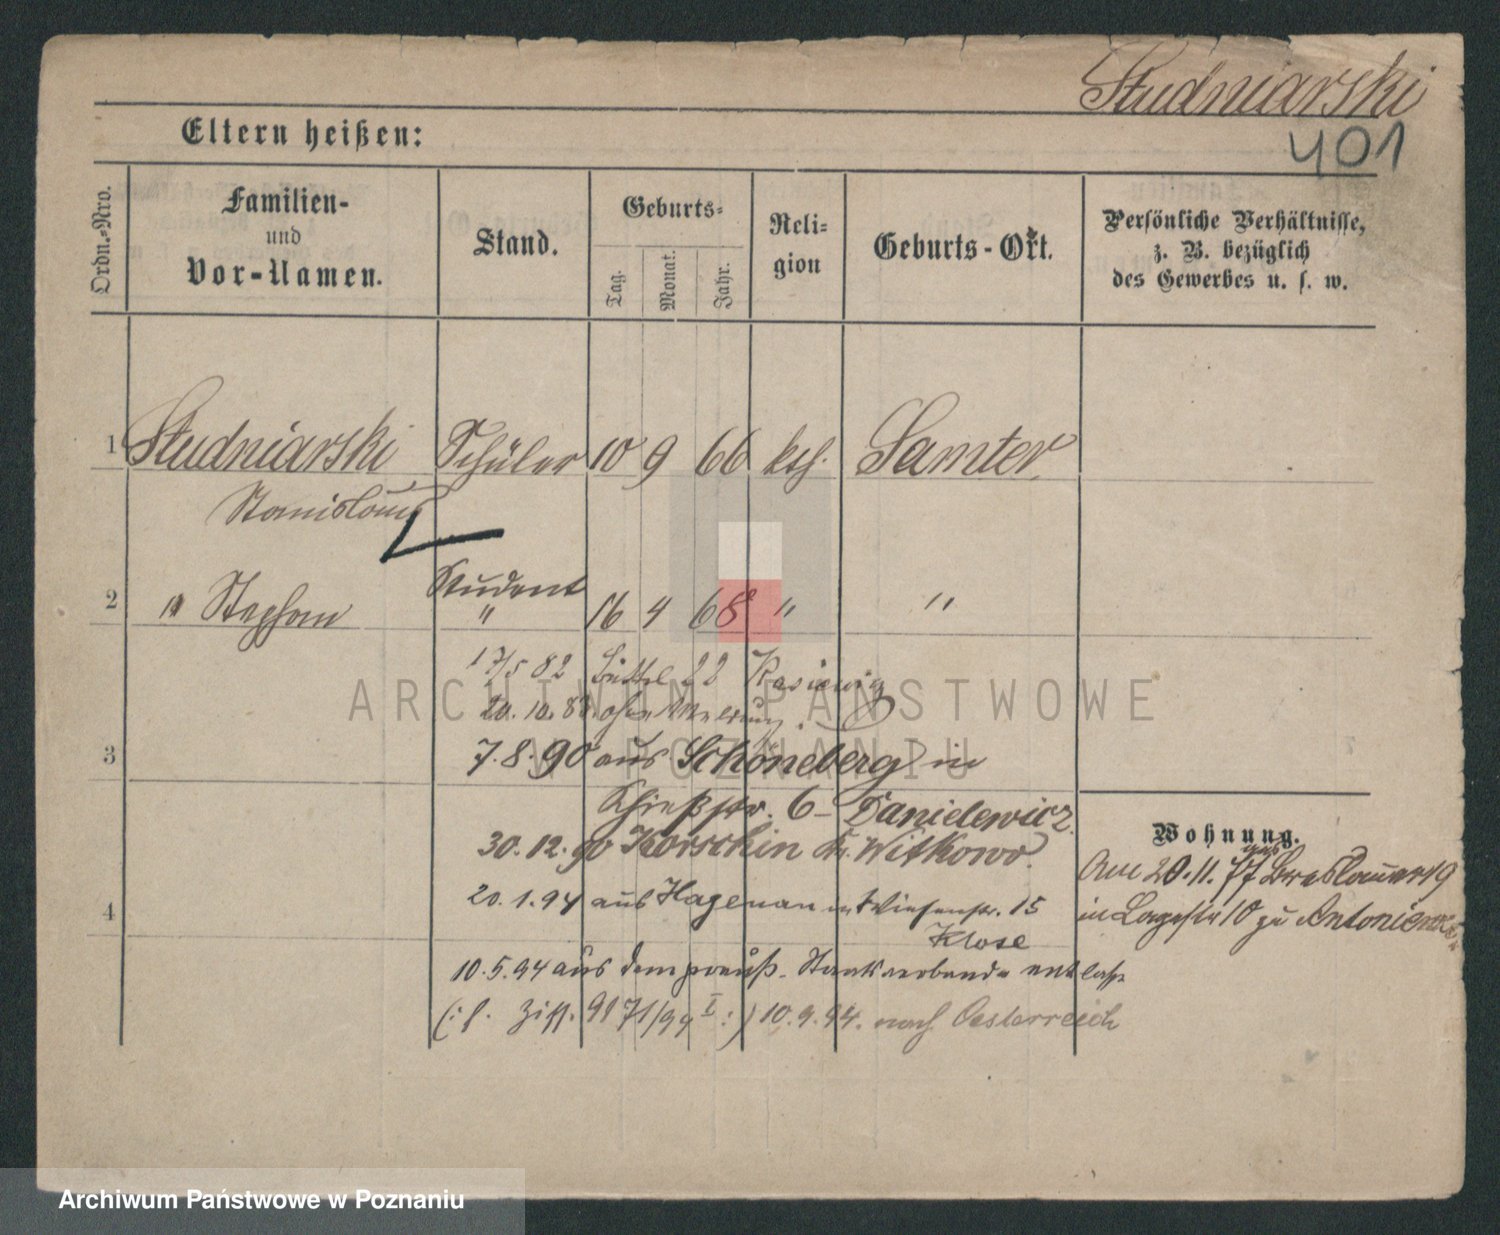 Studniarski
401
Eltern heißen:
Ordn.-Nro.
Familien-
und
Vor-Namen.
Stand.
Geburts-
Tag.
Monat.
Jahr.
Reli-
gion
Geburts-Ort.
Persönliche Verhältnisse,
z. B. bezüglich
des Gewerbes u. s. w.
1 Studniarski Schüler 10 9 66 kth. Samter
Stanislaus
Student
2 " Stephan " 16 4 68 " "
17/5 82 Büttel 22
20.10.88. ohne Meldung.
3 7.8.90 aus Schöneberg in
Schießstr. 6 - Danielewicz.
30.12.90 Korschin Kr. Witkowo.
Wohnung.
Am 20.11.77 aus Breslauer 19
4 20.1.94 aus Hagenau in Wiesenstr. 15
in Lagestr 10 zu
Klose
10.5.94 aus dem preuß. Staatsverbande entlass.
10.9.94. nach Oesterreich
ARCHIWUM PAŃSTWOWE
W POZNANIU
Archiwum Państwowe w Poznaniu